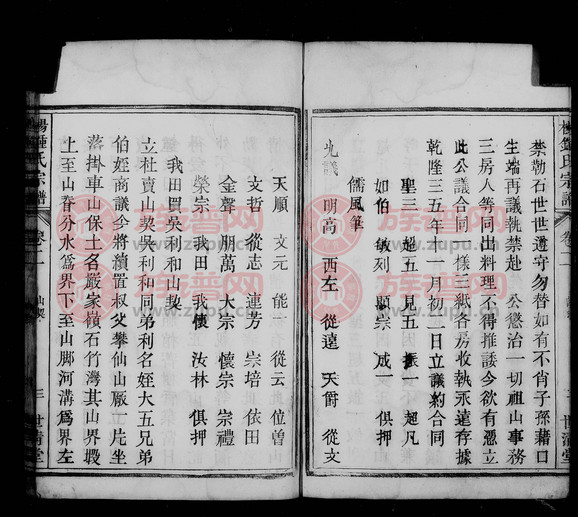 禁勒石世世遵守勿替如有不肖子孫藉口
生端再議執禁赴 公懲治一切祖山事務
三房人等同出料理不得推諉今欲有憑立
此公議合同一樣三紙各房收執永遠存據
乾隆三五年十一月初二日立議約合同
聖三 超五 見五 振一 超凡
如伯 敏刻 顯宗 成一 俱押
儒風筆
九議 明高 西左 從遠 天爵 從文
天順 文元 能一 從云 位曾
文哲 從志 連芳 宗培 依田
金聲 朋萬 大宗 懷宗 宗禮
榮宗 我田 我懷 汝林 俱押
我田買吳利和山契
立杜賣山契吳利和同弟利名姪大五兄弟
伯姪商議今將續置叔父攀仙山廠一片坐
落掛車山保土名嚴家嶺石竹灣其山界毀
上至山脊分水為界下至山脚河溝為界左
楊鍾氏宗譜 卷二 山契 三 世清堂
族譜网
www.zupu.cn